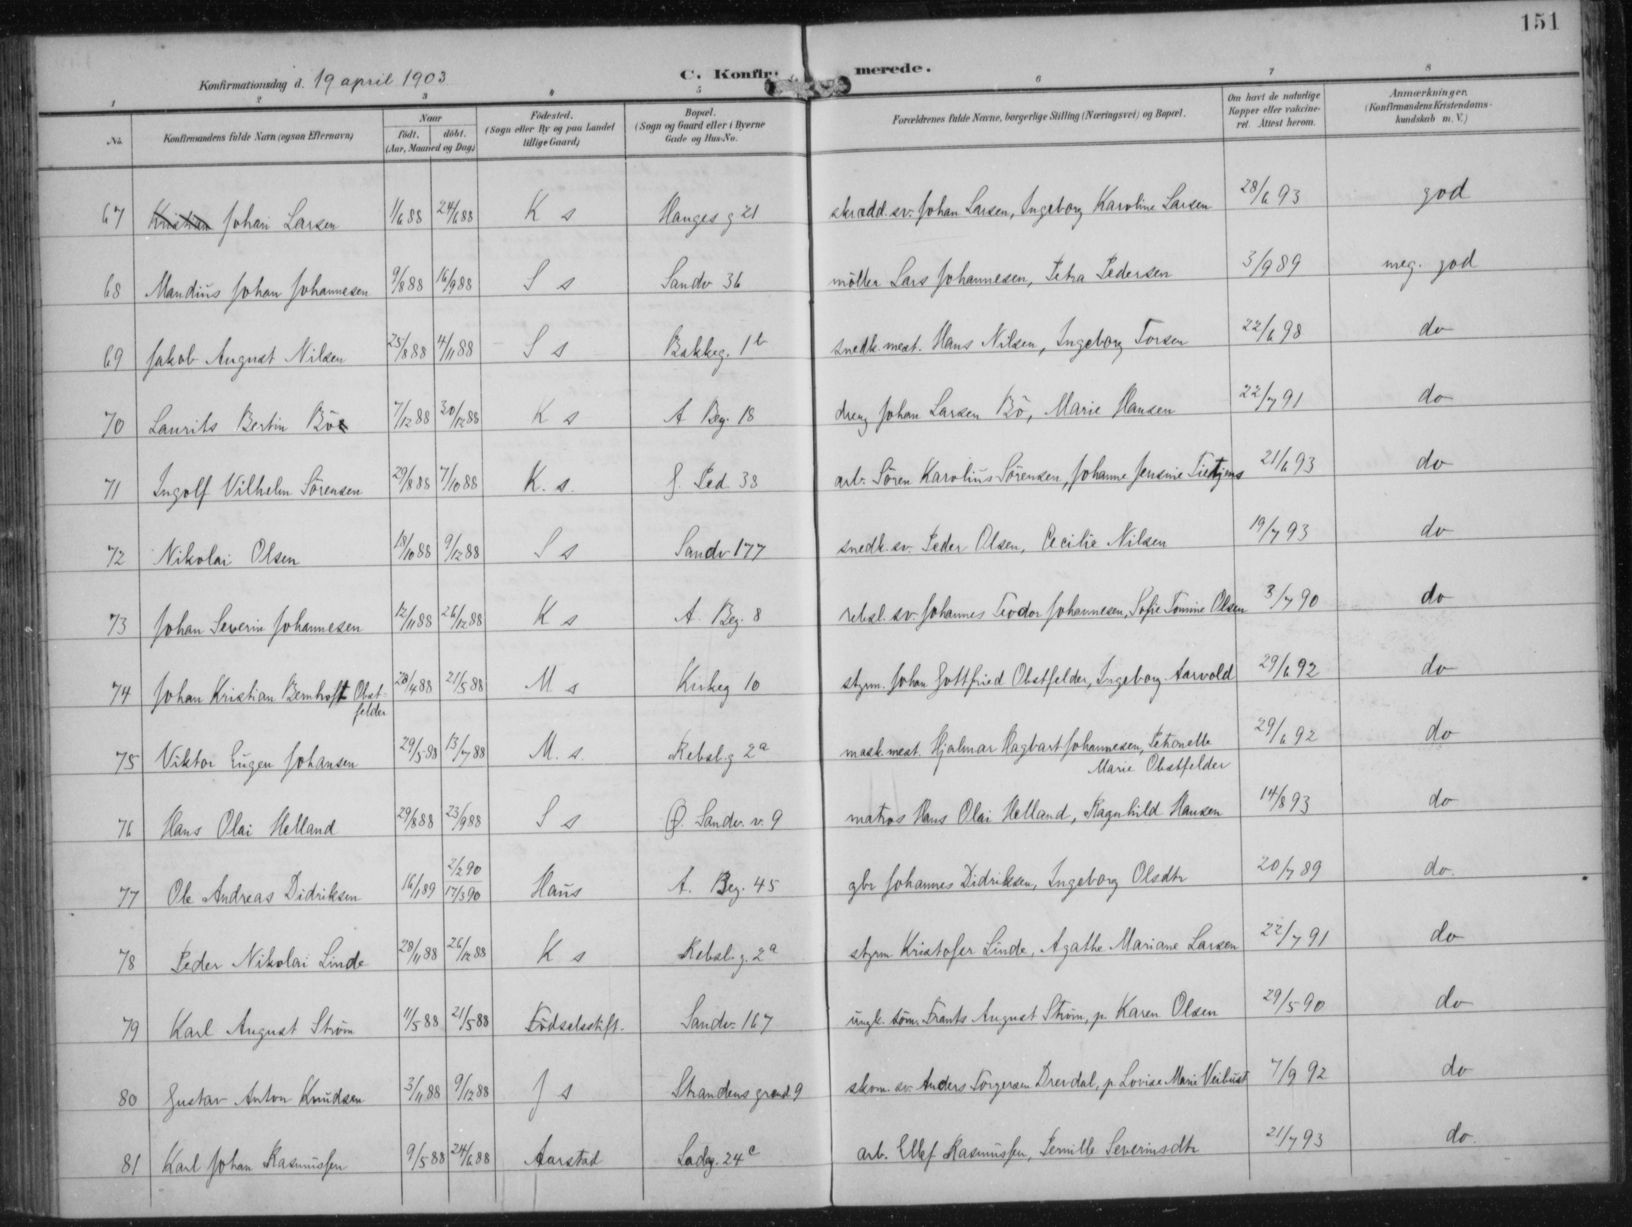 151
Konfirmationsdag d. 19 april 1903 C. Konfir- merede.
1 2 3 4 5 6 7 8
No. Konfirmandens fulde Navn (ogsaa Efternavn) Naar født. døbt. (Aar, Maaned og Dag) Fødested. (Sogn eller By og paa Landet tillige Gaard) Bopæl. (Sogn og Gaard eller i Byerne Gade og Hus-No. Forældrenes fulde Navne, borgerlige Stilling (Næringsvei) og Bopæl. Om havt de naturlige Kopper eller vakcineret. Attest herom. Anmærkninger. (Konfirmandens Kristendomskundskab m. V.)
67 Kristian Johan Larsen 1/6 88 24/6 88 K s Hauges g 21 skrædd.sv. Johan Larsen, Ingeborg Karoline Larsen 28/6 93 god
68 Mandius Johan Johannesen 9/8 88 16/9 88 S s Sandv 36 möller Lars Johannesen, Petra Pedersen 3/9 89 meg. god
69 Jakob August Nilsen 25/8 88 4/11 88 S s Bakkeg. 1b snedk.mest. Hans Nilsen, Ingeborg Torsen 22/6 98 do
70 Laurits Bertin Bö 7/12 88 30/12 88 K s A Beg. 18 dreng Johan Larsen Bö, Marie Hansen 22/7 91 do
71 Ingolf Vilhelm Sörensen 29/8 88 7/10 88 K. s. J. Ped. 38 arb. Sören Karolius Sörensen, Johanne Jensine Tietjens 21/6 93 do
72 Nikolai Olsen 18/10 88 9/12 88 S s Sandv 177 snedk.sv. Peder Olsen, Cecilie Nilsen 19/7 93 do
73 Johan Severin Johannesen 12/11 88 26/12 88 K s A. Beg. 8 rebsl.sv. Johannes Teodor Johannesen, Sofie Tomine Olsen 3/7 90 do
74 Johan Kristian Bernhoft Obst- 28/4 88 21/5 88 M s Kirkeg 10 styrm. Johan Gottfried Obstfelder, Ingeborg Aarvold 29/6 92 do
felder
75 Viktor Eugen Johansen 29/5 88 13/7 88 M. s. Rebsl.g 2a mask.mest. Hjalmar Hagbart Johannesen, Petronelle 29/6 92 do
Marie Obstfelder
76 Hans Olai Helland 29/8 88 23/9 88 S s Ø. Sandv. v. 9 matros Hans Olai Helland, Ragnhild Hansen 14/8 93 do
2/2 90
77 Ole Andreas Didriksen 16/1 89 17/3 90 Haus A. Beg. 45 gbr Johannes Didriksen, Ingeborg Olsdtr 20/7 89 do.
78 Peder Nikolai Linde 28/11 88 26/12 88 K s Rebsl.g. 2a styrm Kristofer Linde, Agathe Mariane Larsen 22/7 91 do
79 Karl August Ström 11/5 88 21/5 88 Födselsstift. Sandv. 167 ungk. töm. Frants August Ström, p. Karen Olsen 29/5 90 do
80 Gustav Anton Knudsen 3/11 88 9/12 88 J s Strandens grend 9 skom.sv. Anders Torgersen Drevdal, p. Lovise Marie Veibust 7/9 92 do
81 Karl Johan Rasmussen 9/5 88 24/6 88 Aarstad Ladeg. 24c arb. Ellef Rasmussen, Pernille Severinsdtr 21/7 93 do.